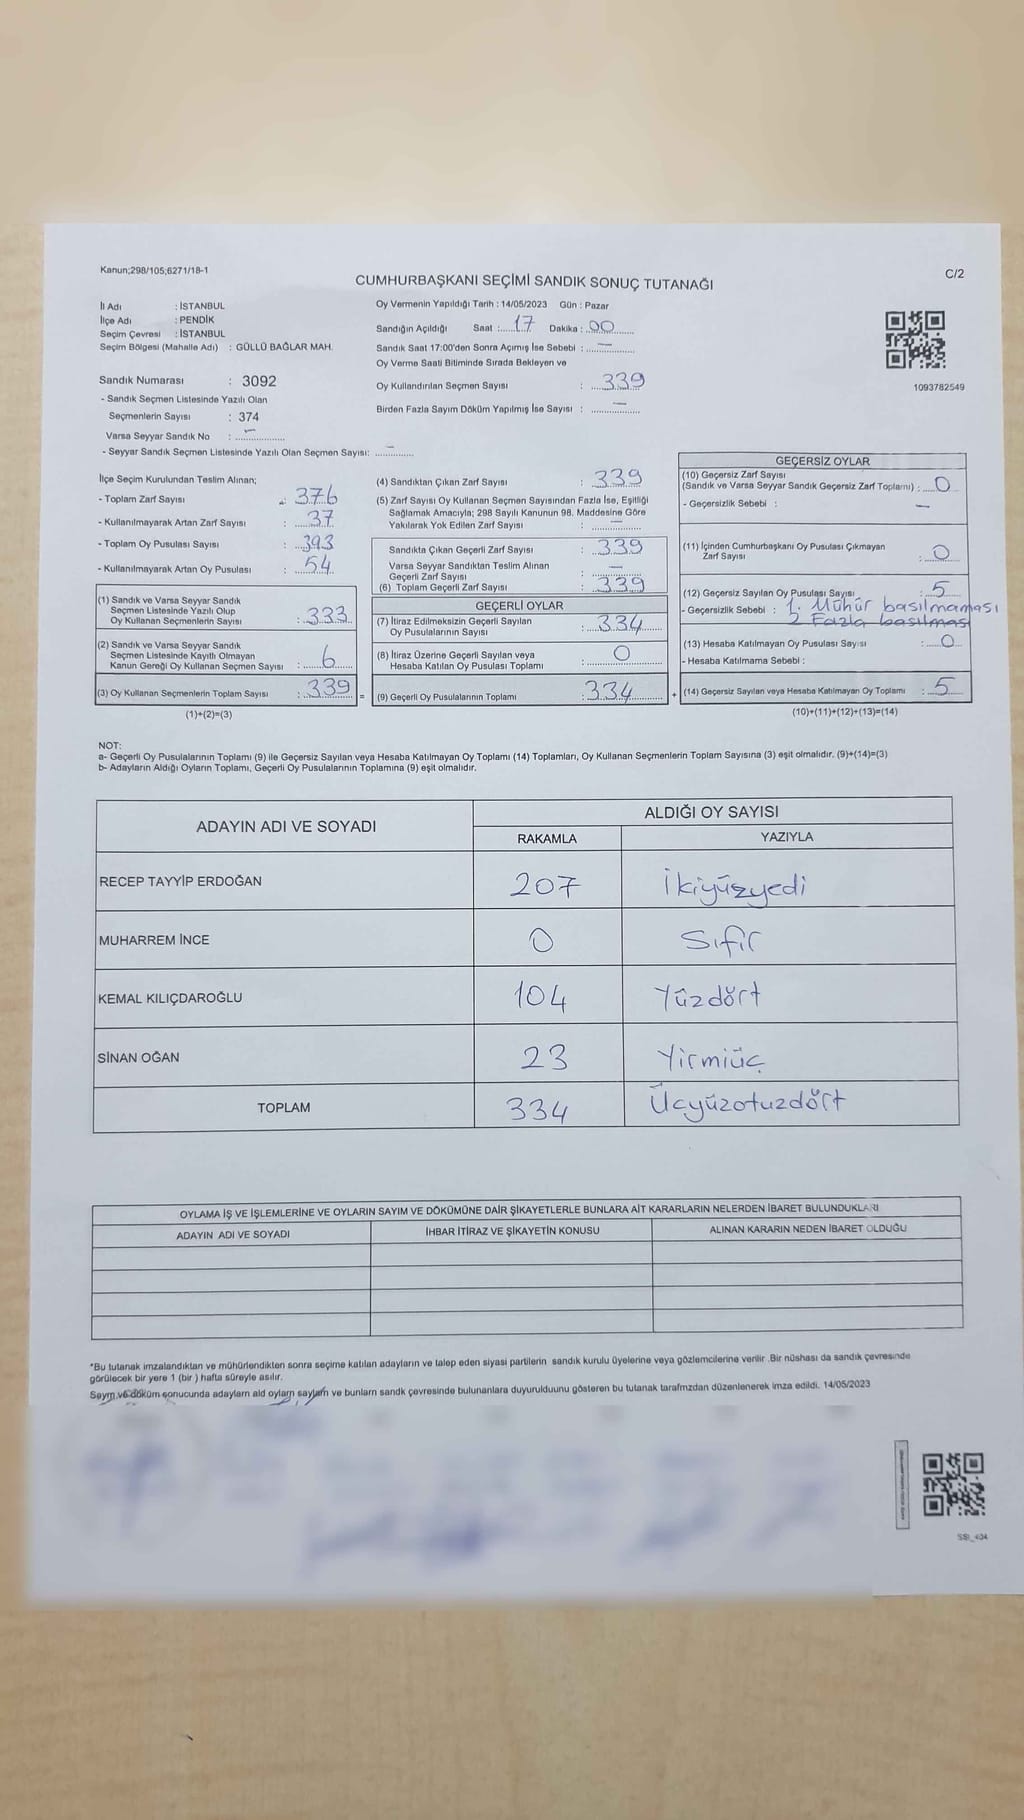 Kanun;298/105;6271/18-1
C/2
CUMHURBAŞKANI SEÇİMİ SANDIK SONUÇ TUTANAĞI
İl Adı : İSTANBUL
İlçe Adı : PENDİK
Seçim Çevresi : İSTANBUL
Seçim Bölgesi (Mahalle Adı) : GÜLLÜ BAĞLAR MAH.
Sandık Numarası : 3092
- Sandık Seçmen Listesinde Yazılı Olan
Seçmenlerin Sayısı : 374
Varsa Seyyar Sandık No : –
- Seyyar Sandık Seçmen Listesinde Yazılı Olan Seçmen Sayısı: –
Oy Vermenin Yapıldığı Tarih : 14/05/2023 Gün : Pazar
Sandığın Açıldığı Saat : 17 Dakika : 00
Sandık Saat 17:00'den Sonra Açımış İse Sebebi : –
Oy Verme Saati Bitiminde Sırada Bekleyen ve
Oy Kullandırılan Seçmen Sayısı : 339
Birden Fazla Sayım Döküm Yapılmış İse Sayısı : –
1093782549
İlçe Seçim Kurulundan Teslim Alınan;
- Toplam Zarf Sayısı : 376
- Kullanılmayarak Artan Zarf Sayısı : 37
- Toplam Oy Pusulası Sayısı : 393
- Kullanılmayarak Artan Oy Pusulası : 54
(1) Sandık ve Varsa Seyyar Sandık
Seçmen Listesinde Yazılı Olup
Oy Kullanan Seçmenlerin Sayısı : 333
(2) Sandık ve Varsa Seyyar Sandık
Seçmen Listesinde Kayıtlı Olmayan
Kanun Gereği Oy Kullanan Seçmen Sayısı : 6
(3) Oy Kullanan Seçmenlerin Toplam Sayısı : 339 =
(1)+(2)=(3)
(4) Sandıktan Çıkan Zarf Sayısı : 339
(5) Zarf Sayısı Oy Kullanan Seçmen Sayısından Fazla İse, Eşitliği
Sağlamak Amacıyla; 298 Sayılı Kanunun 98. Maddesine Göre
Yakılarak Yok Edilen Zarf Sayısı : –
Sandıkta Çıkan Geçerli Zarf Sayısı : 339
Varsa Seyyar Sandıktan Teslim Alınan
Geçerli Zarf Sayısı : –
(6) Toplam Geçerli Zarf Sayısı : 339
GEÇERLİ OYLAR
(7) İtiraz Edilmeksizin Geçerli Sayılan
Oy Pusulalarının Sayısı : 334
(8) İtiraz Üzerine Geçerli Sayılan veya
Hesaba Katılan Oy Pusulası Toplamı : 0
(9) Geçerli Oy Pusulalarının Toplamı : 334 +
GEÇERSİZ OYLAR
(10) Geçersiz Zarf Sayısı
(Sandık ve Varsa Seyyar Sandık Geçersiz Zarf Toplamı) : 0
- Geçersizlik Sebebi : –
(11) İçinden Cumhurbaşkanı Oy Pusulası Çıkmayan
Zarf Sayısı : 0
(12) Geçersiz Sayılan Oy Pusulası Sayısı : 5
- Geçersizlik Sebebi : 1. Mühür basılmaması
2 Fazla basılması
(13) Hesaba Katılmayan Oy Pusulası Sayısı : 0
- Hesaba Katılmama Sebebi :
(14) Geçersiz Sayılan veya Hesaba Katılmayan Oy Toplamı : 5
(10)+(11)+(12)+(13)=(14)
NOT:
a- Geçerli Oy Pusulalarının Toplamı (9) ile Geçersiz Sayılan veya Hesaba Katılmayan Oy Toplamı (14) Toplamları, Oy Kullanan Seçmenlerin Toplam Sayısına (3) eşit olmalıdır. (9)+(14)=(3)
b- Adayların Aldığı Oyların Toplamı, Geçerli Oy Pusulalarının Toplamına (9) eşit olmalıdır.
ADAYIN ADI VE SOYADI ALDIĞI OY SAYISI
RAKAMLA YAZIYLA
RECEP TAYYİP ERDOĞAN 207 İkiyüzyedi
MUHARREM İNCE 0 Sıfır
KEMAL KILIÇDAROĞLU 104 Yüzdört
SİNAN OĞAN 23 Yirmiüç
TOPLAM 334 Üçyüzotuzdört
OYLAMA İŞ VE İŞLEMLERİNE VE OYLARIN SAYIM VE DÖKÜMÜNE DAİR ŞİKAYETLERLE BUNLARA AİT KARARLARIN NELERDEN İBARET BULUNDUKLARI
ADAYIN ADI VE SOYADI İHBAR İTİRAZ VE ŞİKAYETİN KONUSU ALINAN KARARIN NEDEN İBARET OLDUĞU
*Bu tutanak imzalandıktan ve mühürlendikten sonra seçime katılan adayların ve talep eden siyasi partilerin sandık kurulu üyelerine veya gözlemcilerine verilir .Bir nüshası da sandık çevresinde
görülecek bir yere 1 (bir ) hafta süreyle asılır.
Saym ve döküm sonucunda adaylarn ald oylarn saylarn ve bunlarn sandk çevresinde bulunanlara duyurulduunu gösteren bu tutanak tarafmzdan düzenlenerek imza edildi. 14/05/2023